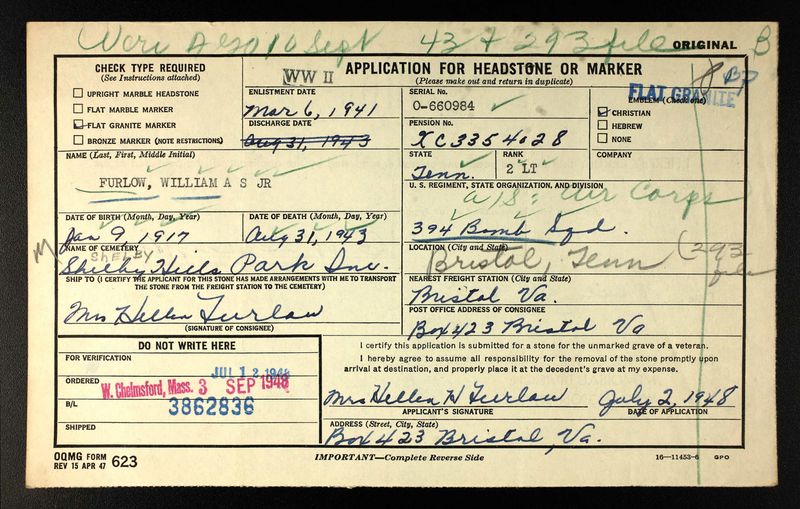 Were A 20 10 Sept 43 + 293 file
ORIGINAL B
CHECK TYPE REQUIRED
(See Instructions attached)
UPRIGHT MARBLE HEADSTONE
FLAT MARBLE MARKER
FLAT GRANITE MARKER
BRONZE MARKER (NOTE RESTRICTIONS)
WW II
APPLICATION FOR HEADSTONE OR MARKER
(Please make out and return in duplicate)
ENLISTMENT DATE
Mar 6, 1941
DISCHARGE DATE
Aug 31, 1943
SERIAL No.
O-660984
PENSION No.
XC3354028
EMBLEM (Check one)
FLAT GRANITE
CHRISTIAN
HEBREW
NONE
NAME (Last, First, Middle Initial)
FURLOW, WILLIAM A S JR
STATE
Tenn.
RANK
2 LT
COMPANY
U. S. REGIMENT, STATE ORGANIZATION, AND DIVISION
A/S: Air Corps
394 Bomb Sqd.
DATE OF BIRTH (Month, Day, Year)
Jan 9 1917
DATE OF DEATH (Month, Day, Year)
Aug 31, 1943
NAME OF CEMETERY
SHELBY
Shelby Hills Park Inc.
LOCATION (City and State)
Bristol, Tenn (293 file
SHIP TO (I CERTIFY THE APPLICANT FOR THIS STONE HAS MADE ARRANGEMENTS WITH ME TO TRANSPORT
THE STONE FROM THE FREIGHT STATION TO THE CEMETERY)
Mrs Hellen Furlow
(SIGNATURE OF CONSIGNEE)
NEAREST FREIGHT STATION (City and State)
Bristol Va.
POST OFFICE ADDRESS OF CONSIGNEE
Box 423 Bristol Va
DO NOT WRITE HERE
FOR VERIFICATION
JUL 12 1948
ORDERED
W. Chelmsford, Mass. 3 SEP 1948
B/L
3862836
SHIPPED
I certify this application is submitted for a stone for the unmarked grave of a veteran.
I hereby agree to assume all responsibility for the removal of the stone promptly upon
arrival at destination, and properly place it at the decedent's grave at my expense.
Mrs Hellen H Furlow July 2, 1948
APPLICANT'S SIGNATURE
DATE OF APPLICATION
ADDRESS (Street, City, State)
Box 423 Bristol, Va.
OQMG FORM
REV 15 APR 47 623
IMPORTANT—Complete Reverse Side
16—11453-6 GPO